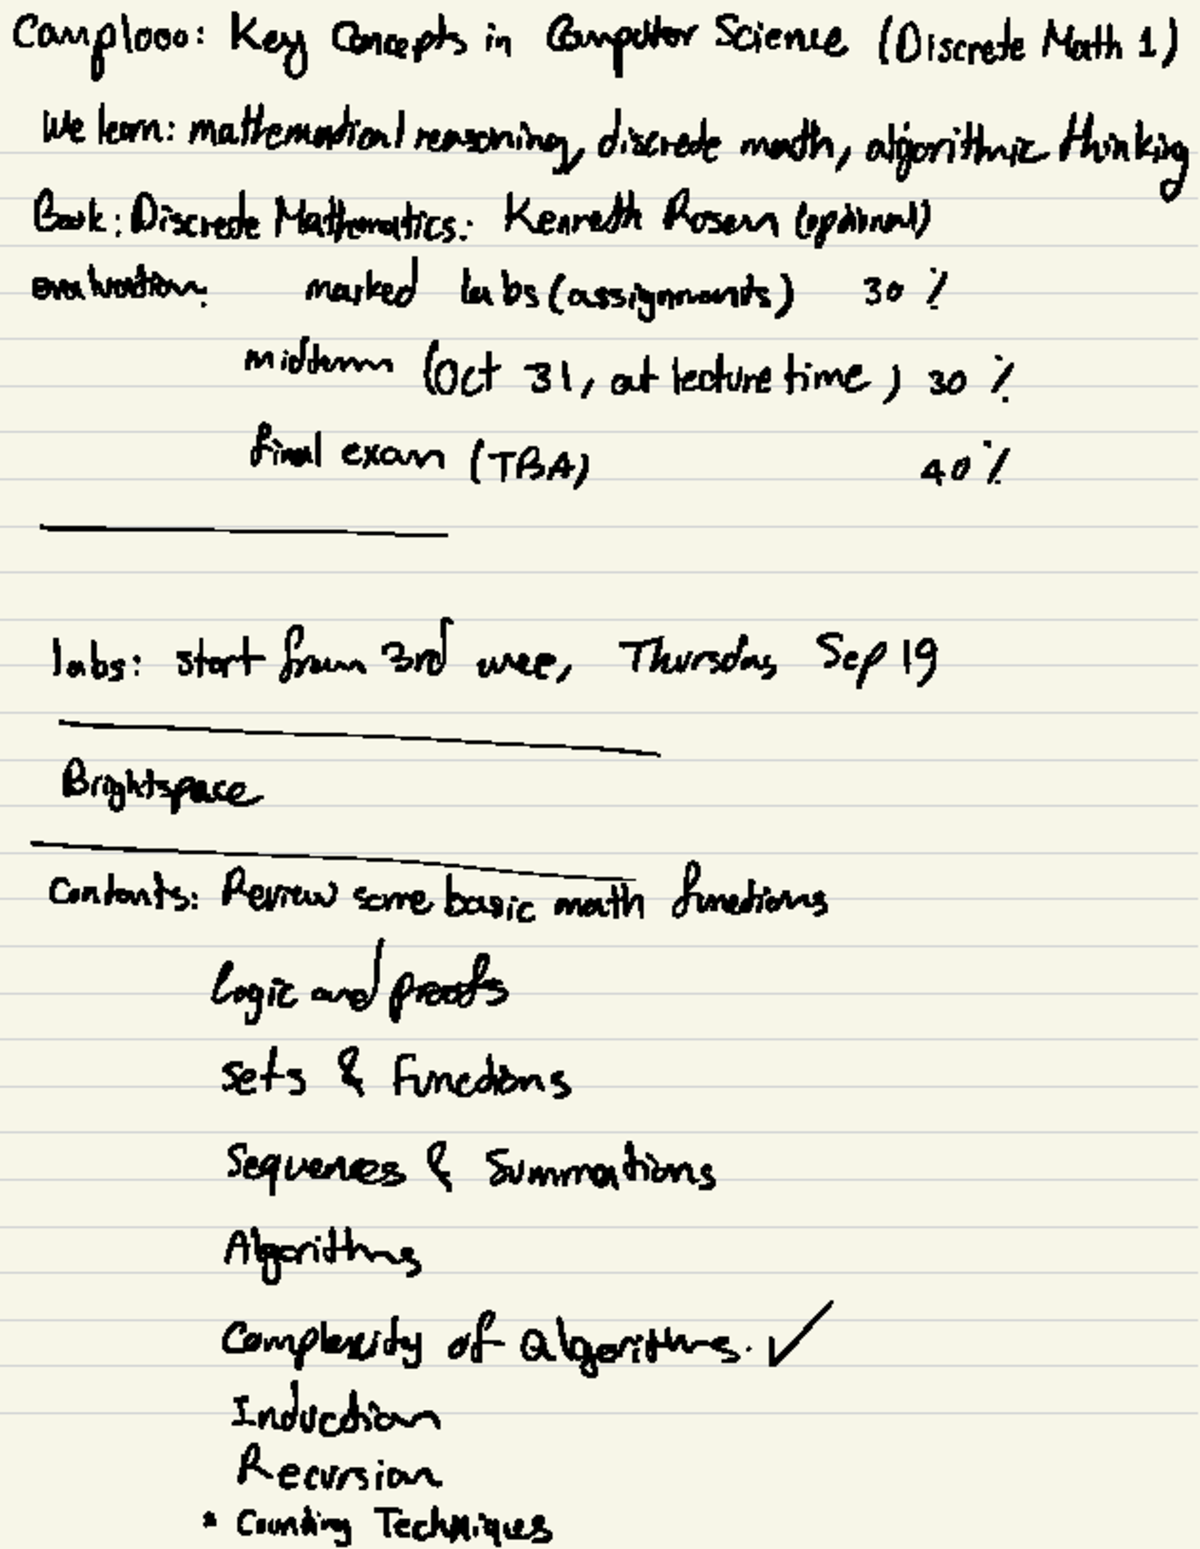 Comp1000: Key Concepts in Computer Science (Discrete Math 1)
We learn: mathematical reasoning, discrete math, algorithmic thinking
Book: Discrete Mathematics: Kenneth Rosen (optional)
evaluation: marked labs (assignments) 30 %
midterm (Oct 31, at lecture time) 30 %
final exam (TBA) 40 %
labs: start from 3rd wee, Thursday Sep 19
Brightspace
Contents: Review some basic math functions
Logic and proofs
Sets & Functions
Sequences & Summations
Algorithms
Complexity of algorithms. ✓
Induction
Recursion
* Counting Techniques